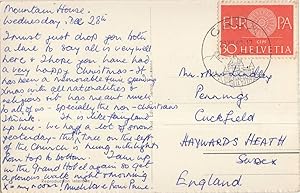 Mountain House.
Wednesday, Dec 28th
I must just drop you both
a line to say all is very well
here & I hope you have had
a very happy Christmas - It
has been a memorable time spending
Xmas with all nationalities &
religions & it has meant much
to all of us - specially the non-christians
I think. It is like fairyland
up here - we had a lot of snow
yesterday - the tree on the left
of the Church is hung with lights
from top to bottom. I am up
in the Grand Hotel again so get
a glorious walk night & morning
& my room! Much love from
EUROPA
30 HELVETIA
Mr. Mrs Lindley
Pennings
Cuckfield
HAYWARDS HEATH
Sussex
England